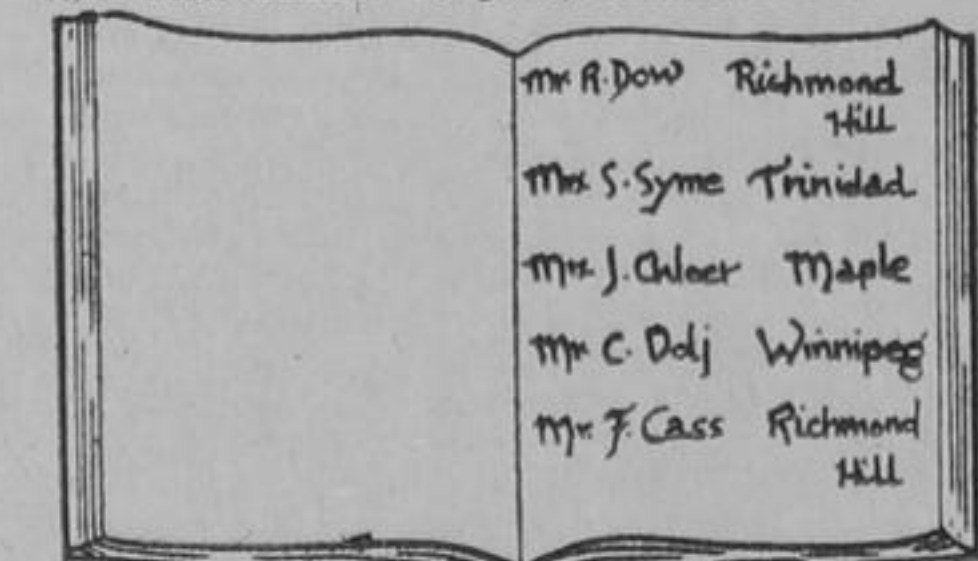 Mr. R. Dow Richmond
Hill
Mrs. S. Syme Trinidad
J. Chloer Maple
Mr. C. Dolj Winnipeg
Mr. F. Cass Richmond
Hill